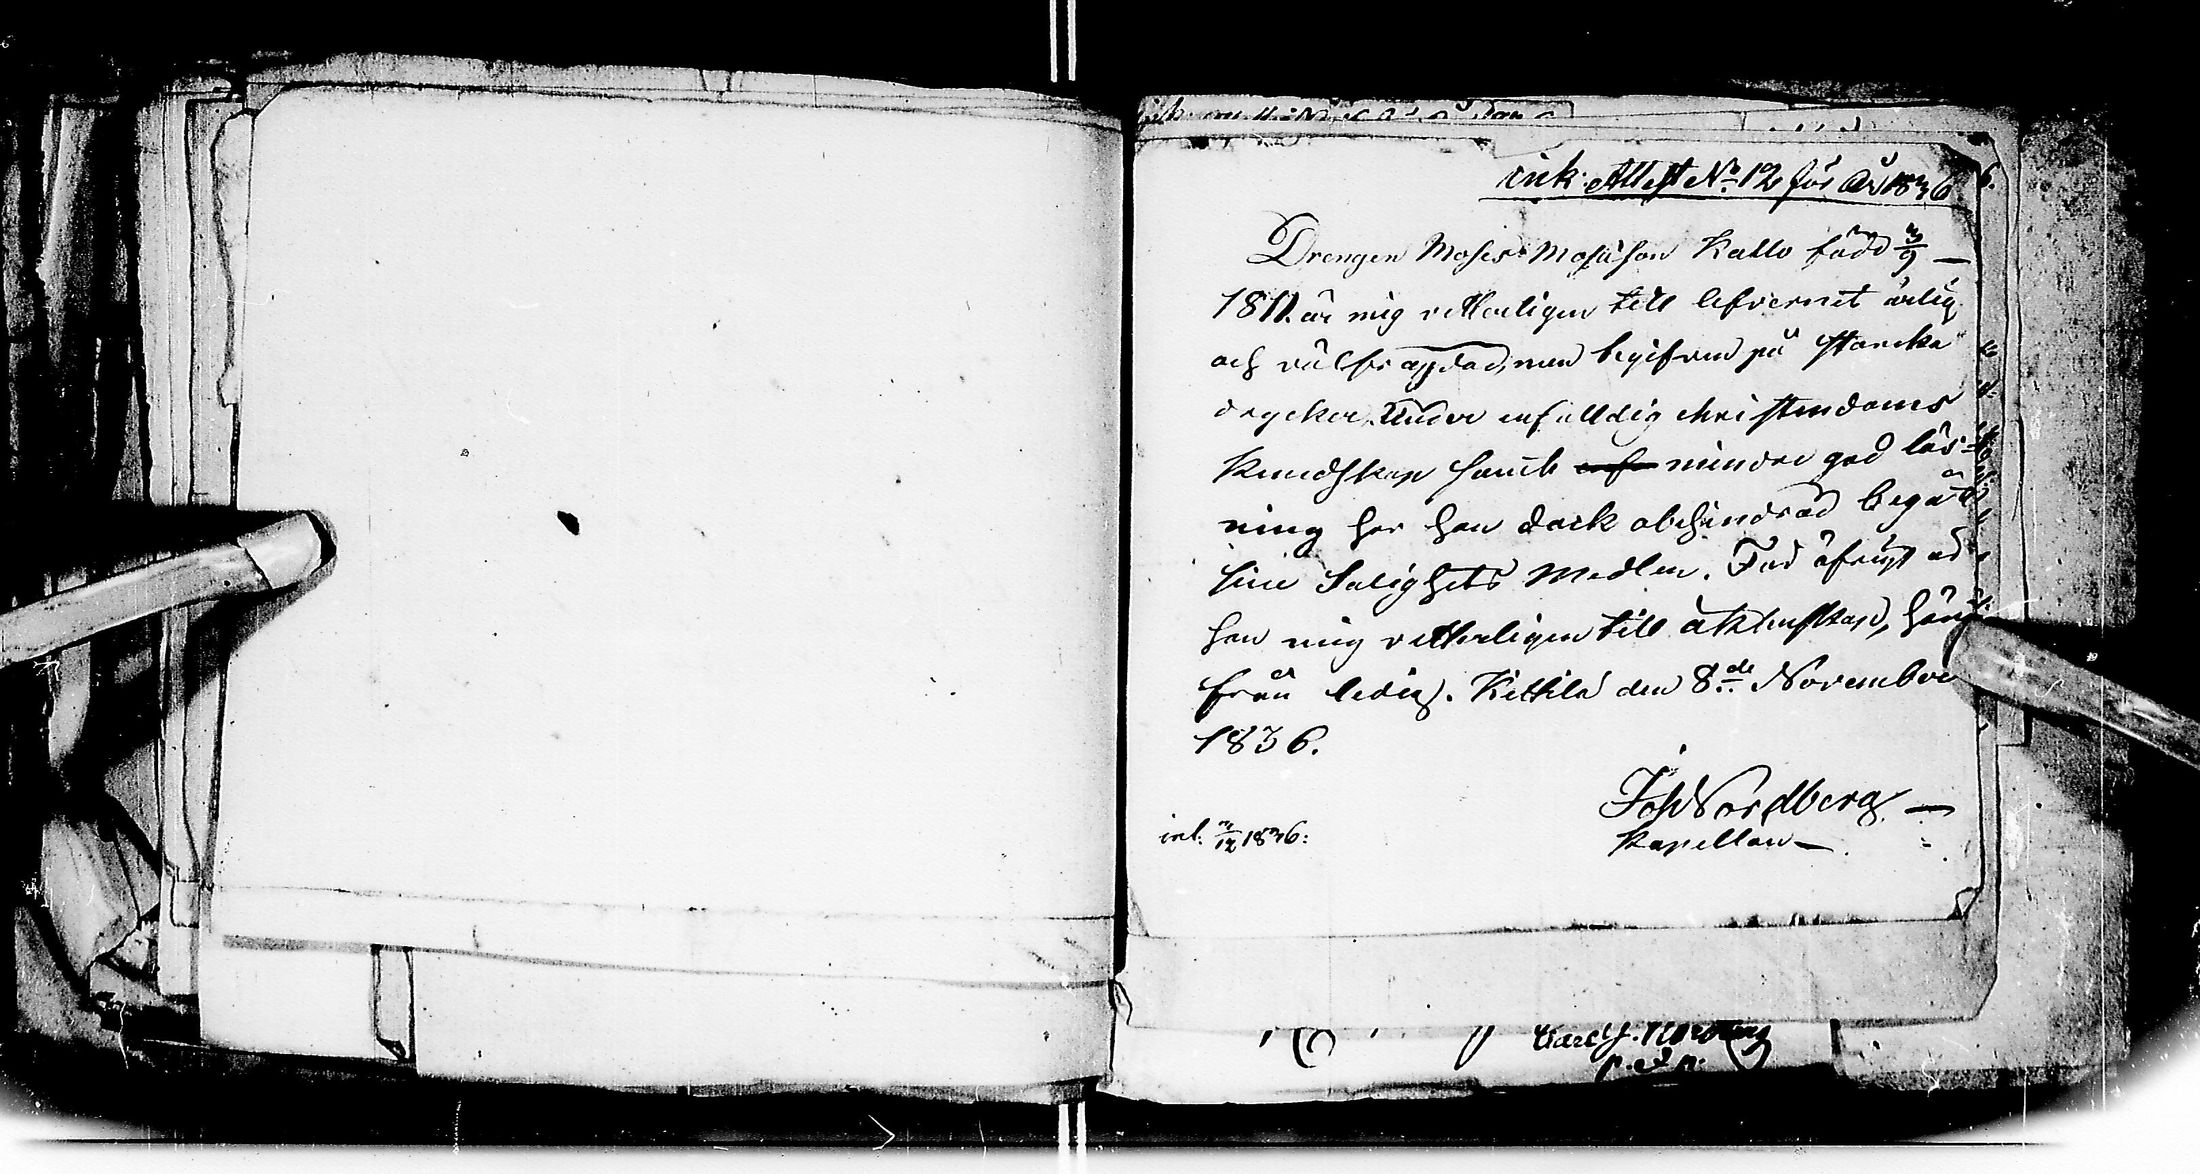 ink. Attest No 12 för År 1836
Drengen Moses Mosisson Kallo född 3/9 —
1811. är mig vetterligen till lefvernet ärlig
och välfrägdad, men begifven på starcka
drycker. Under enfalldig christendoms
kundskap samt mindre god läs-
ning har han dock obehindrad begått
sine Salighets Medlen. För öfrigt är
han mig vetterligen till äktenskap,
från ledig. Kittilä den 8de November
1836.
Joh Nordberg —
Kapellan —
inl. 3/12 1836: